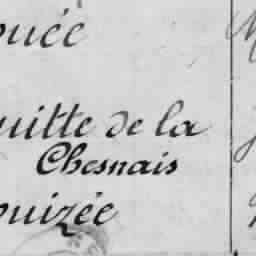 ouée
uitte de la
Chesnais
ouizée